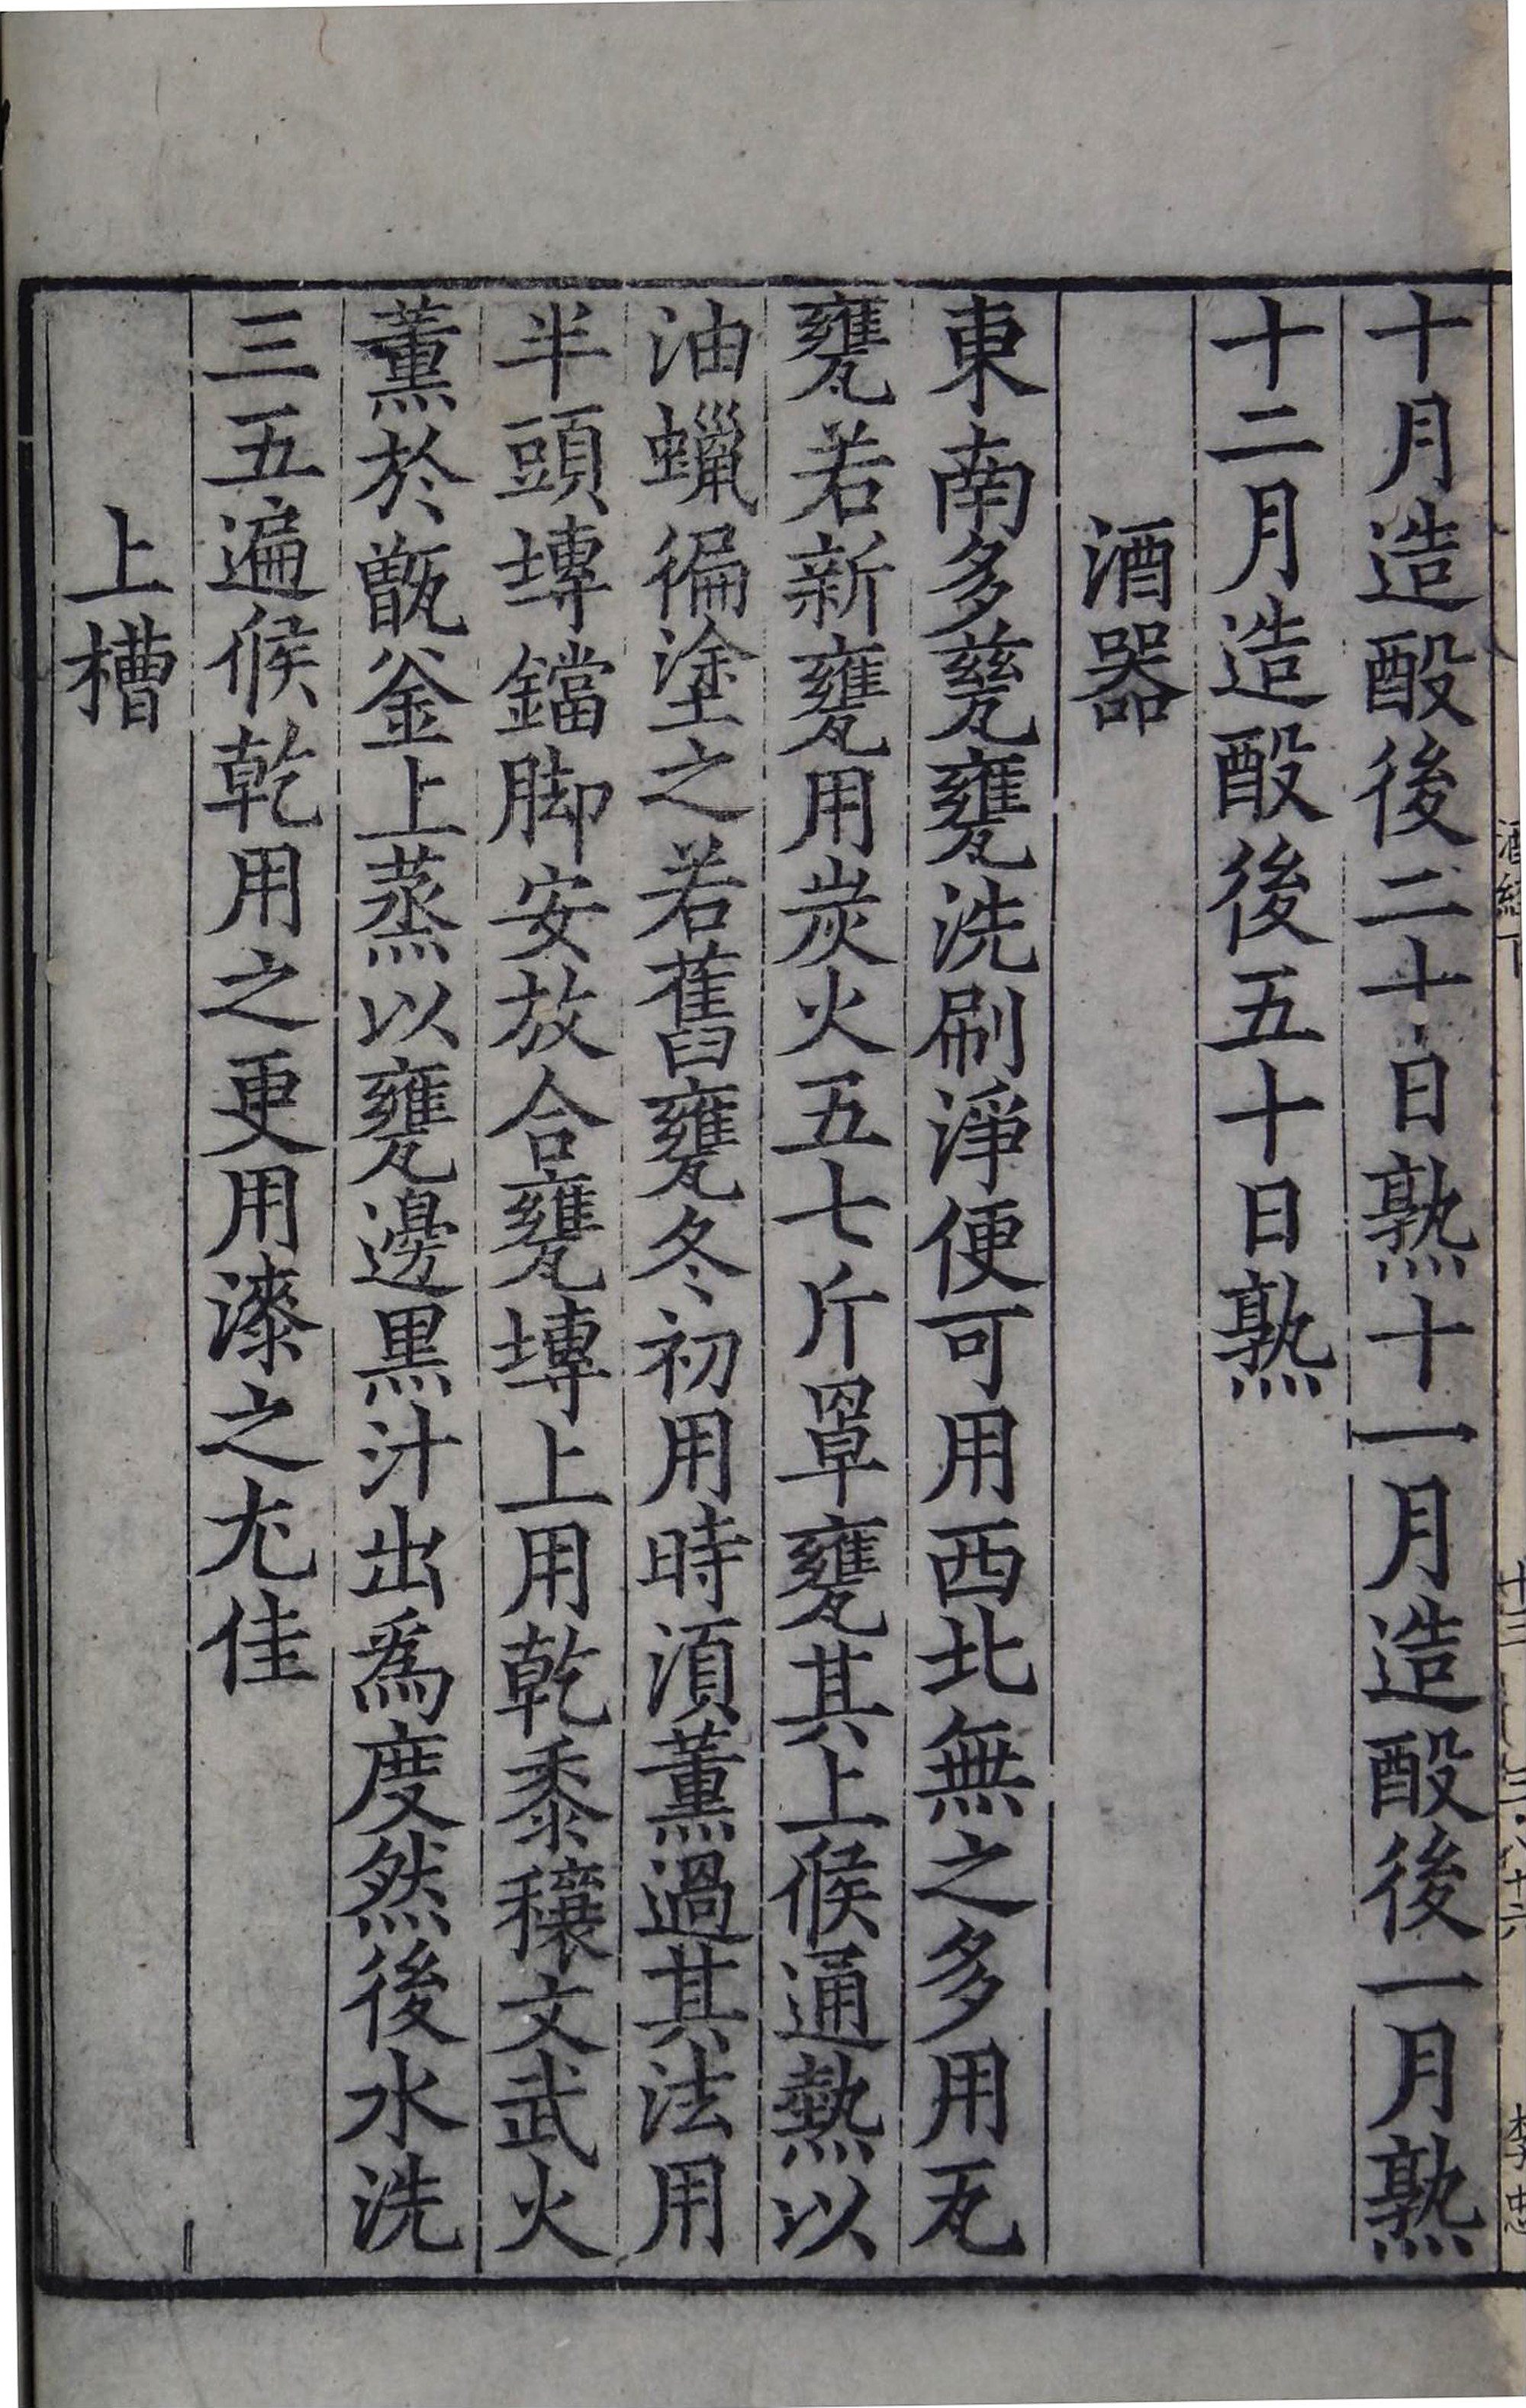 十月造酘後二十日熟十一月造酘後一月熟
十二月造酘後五十日熟
酒器
東南多甆甕洗刷淨便可用西北無之多用瓦
甕若新甕用炭火五七斤罩甕其上候通熱以
油蠟徧塗之若舊甕冬初用時湏薰過其法用
半頭塼鐺脚安放合甕塼上用乾黍穰文武火
薰於甑釜上蒸以甕邊黒汁出爲度然後水洗
三五遍候乾用之更用漆之尤佳
上槽